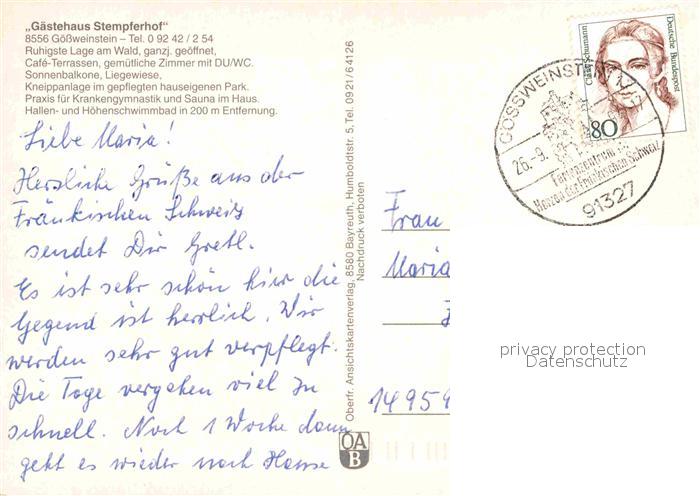 „Gästehaus Stempferhof"
8556 Gößweinstein – Tel. 0 92 42 / 2 54
Ruhigste Lage am Wald, ganzj. geöffnet,
Café-Terrassen, gemütliche Zimmer mit DU/WC.
Sonnenbalkone, Liegewiese,
Kneippanlage im gepflegten hauseigenen Park.
Praxis für Krankengymnastik und Sauna im Haus.
Hallen- und Höhenschwimmbad in 200 m Entfernung.
Liebe Maria!
Herzliche Grüße aus der
Fränkischen Schweiz
sendet Dir Gretl.
Es ist sehr schön hier die
Gegend ist herrlich. Wir
werden sehr gut verpflegt.
Die Tage vergehen viel zu
schnell. Noch 1 Woche dann
geht es wieder nach Hause
Oberfr. Ansichtskartenverlag, 8580 Bayreuth, Humboldtstr. 5, Tel. 0921/64126
Nachdruck verboten
OA
B
Clara Schumann
Deutsche Bundespost
80
GOSSWEINSTEIN 1
26.-9.
Ferienzentrum im
Herzen der Fränkischen Schweiz
91327
Frau
Maria
14959
privacy protection
Datenschutz